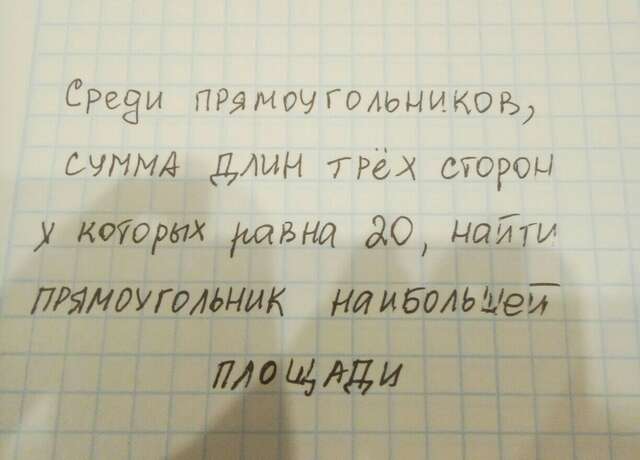 Среди прямоугольников,
сумма длин трёх сторон
у которых равна 20, найти
прямоугольник наибольшей
площади